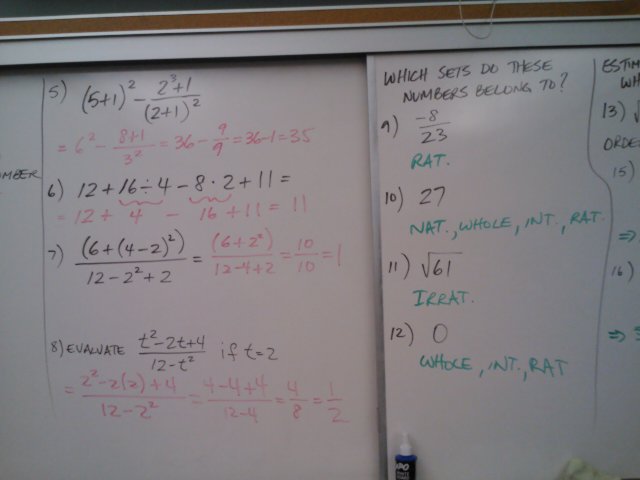 UMBER
5) (5+1)² - (2³+1)/(2+1)²
= 6² - (8+1)/3² = 36 - 9/9 = 36-1 = 35
6) 12 + 16 ÷ 4 - 8 · 2 + 11 =
= 12 + 4 - 16 + 11 = 11
7) (6+(4-2)²)/(12-2²+2) = (6+2²)/(12-4+2) = 10/10 = 1
8) EVALUATE (t²-2t+4)/(12-t²) if t=2
= (2²-2(2)+4)/(12-2²) = (4-4+4)/(12-4) = 4/8 = 1/2
WHICH SETS DO THESE
NUMBERS BELONG TO?
9) -8/23
RAT.
10) 27
NAT., WHOLE, INT., RAT.
11) √61
IRRAT.
12) 0
WHOLE, INT., RAT
ESTIM
WH
13) √
ORDE
15)
⇒
16)
⇒
EXPO